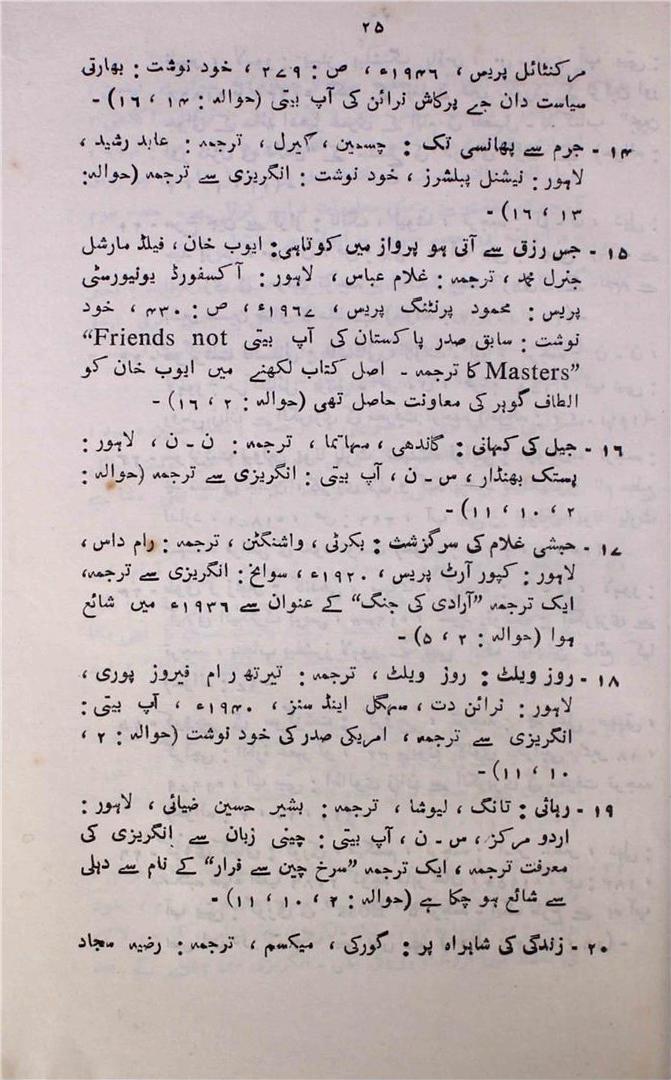 ۲۵
مرکنٹائل پریس ، ۱۹۴۶ء ، ص : ۲۷۹ ، خود نوشت : بھارتی
سیاست دان جے پرکاش نرائن کی آپ بیتی (حوالہ : ۱۴ ، ۱۶) -
۱۴ - جرم سے پھانسی تک : چسمین ، کیرل ، ترجمہ : عابد رشید ،
لاہور : نیشنل پبلشرز ، خود نوشت : انگریزی سے ترجمہ (حوالہ :
۱۳ ، ۱۶) -
۱۵ - جس رزق سے آتی ہو پرواز میں کوتاہی : ایوب خان ، فیلڈ مارشل
جنرل محمد ، ترجمہ : غلام عباس ، لاہور : آکسفورڈ یونیورسٹی
پریس : محمود پرنٹنگ پریس ، ۱۹۶۷ء ، ص : ۴۳۰ ، خود
نوشت : سابق صدر پاکستان کی آپ بیتی "Friends not
Masters" کا ترجمہ - اصل کتاب لکھنے میں ایوب خان کو
الطاف گوہر کی معاونت حاصل تھی (حوالہ : ۲ ، ۱۶) -
۱۶ - جیل کی کہانی : گاندھی ، مہاتما ، ترجمہ : ن - ن ، لاہور :
پستک بھنڈار ، س - ن ، آپ بیتی : انگریزی سے ترجمہ (حوالہ :
۲ ، ۱۰ ، ۱۱) -
۱۷ - حبشی غلام کی سرگزشت : بکرٹی ، واشنگٹن ، ترجمہ : رام داس ،
لاہور : کپور آرٹ پریس ، ۱۹۲۰ء ، سوانح : انگریزی سے ترجمہ ،
ایک ترجمہ ”آزادی کی جنگ“ کے عنوان سے ۱۹۳۶ء میں شائع
ہوا (حوالہ : ۲ ، ۵) -
۱۸ - روز ویلٹ : روز ویلٹ ، ترجمہ : تیرتھ رام فیروز پوری ،
لاہور : نرائن دت ، سہگل اینڈ سنز ، ۱۹۴۰ء ، آپ بیتی :
انگریزی سے ترجمہ ، امریکی صدر کی خود نوشت (حوالہ : ۲ ،
۱۰ ، ۱۱) -
۱۹ - رہائی : تانگ ، لیوشا ، ترجمہ : بشیر حسین ضیائی ، لاہور :
اردو مرکز ، س - ن ، آپ بیتی : چینی زبان سے انگریزی کی
معرفت ترجمہ ، ایک ترجمہ ”سرخ چین سے فرار“ کے نام سے دہلی
سے شائع ہو چکا ہے (حوالہ : ۲ ، ۱۰ ، ۱۱) -
۲۰ - زندگی کی شاہراہ پر : گورکی ، میکسم ، ترجمہ : رضیہ سجاد